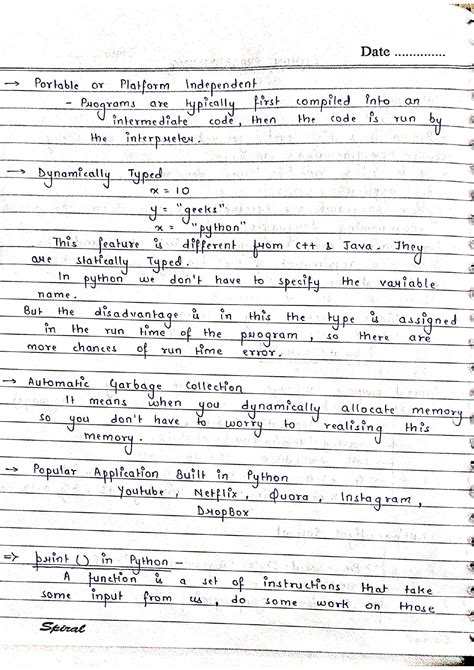 Date ..............
→ Portable or Platform Independent
- Programs are typically first compiled into an
intermediate code, then the code is run by
the interpreter.
→ Dynamically Typed
x = 10
y = "geeks"
x = "python"
This feature is different from C++ & Java. They
are statically Typed.
In python we don't have to specify the variable
name.
But the disadvantage is in this the type is assigned
in the run time of the program, so there are
more chances of run time error.
→ Automatic Garbage Collection
It means when you dynamically allocate memory
so you don't have to worry to realising this
memory.
→ Popular Application Built in Python
Youtube, Netflix, Quora, Instagram,
DropBox
⇒ print() in Python -
A function is a set of instructions that take
some input from us, do some work on those
Spiral